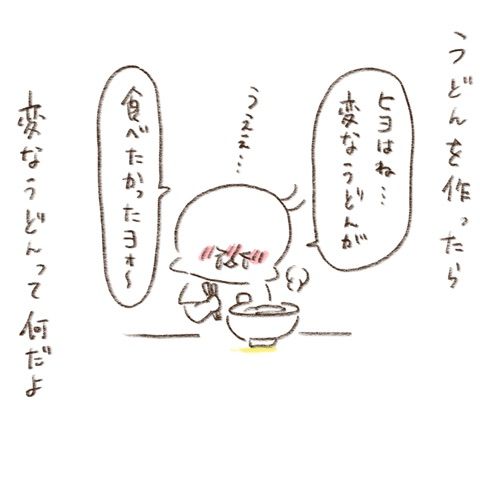 うどんを作ったら
ヒヨはね…
変なうどんが
うええ…
食べたかったヨォ〜
変なうどんって何だよ